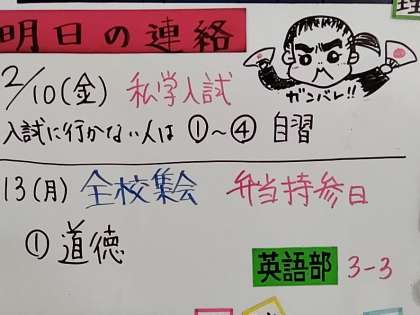 理
明日の連絡
2/10(金) 私学入試
ガンバレ!!
入試に行かない人は ①~④ 自習
13(月) 全校集会 弁当持参日
① 道徳
英語部 3-3